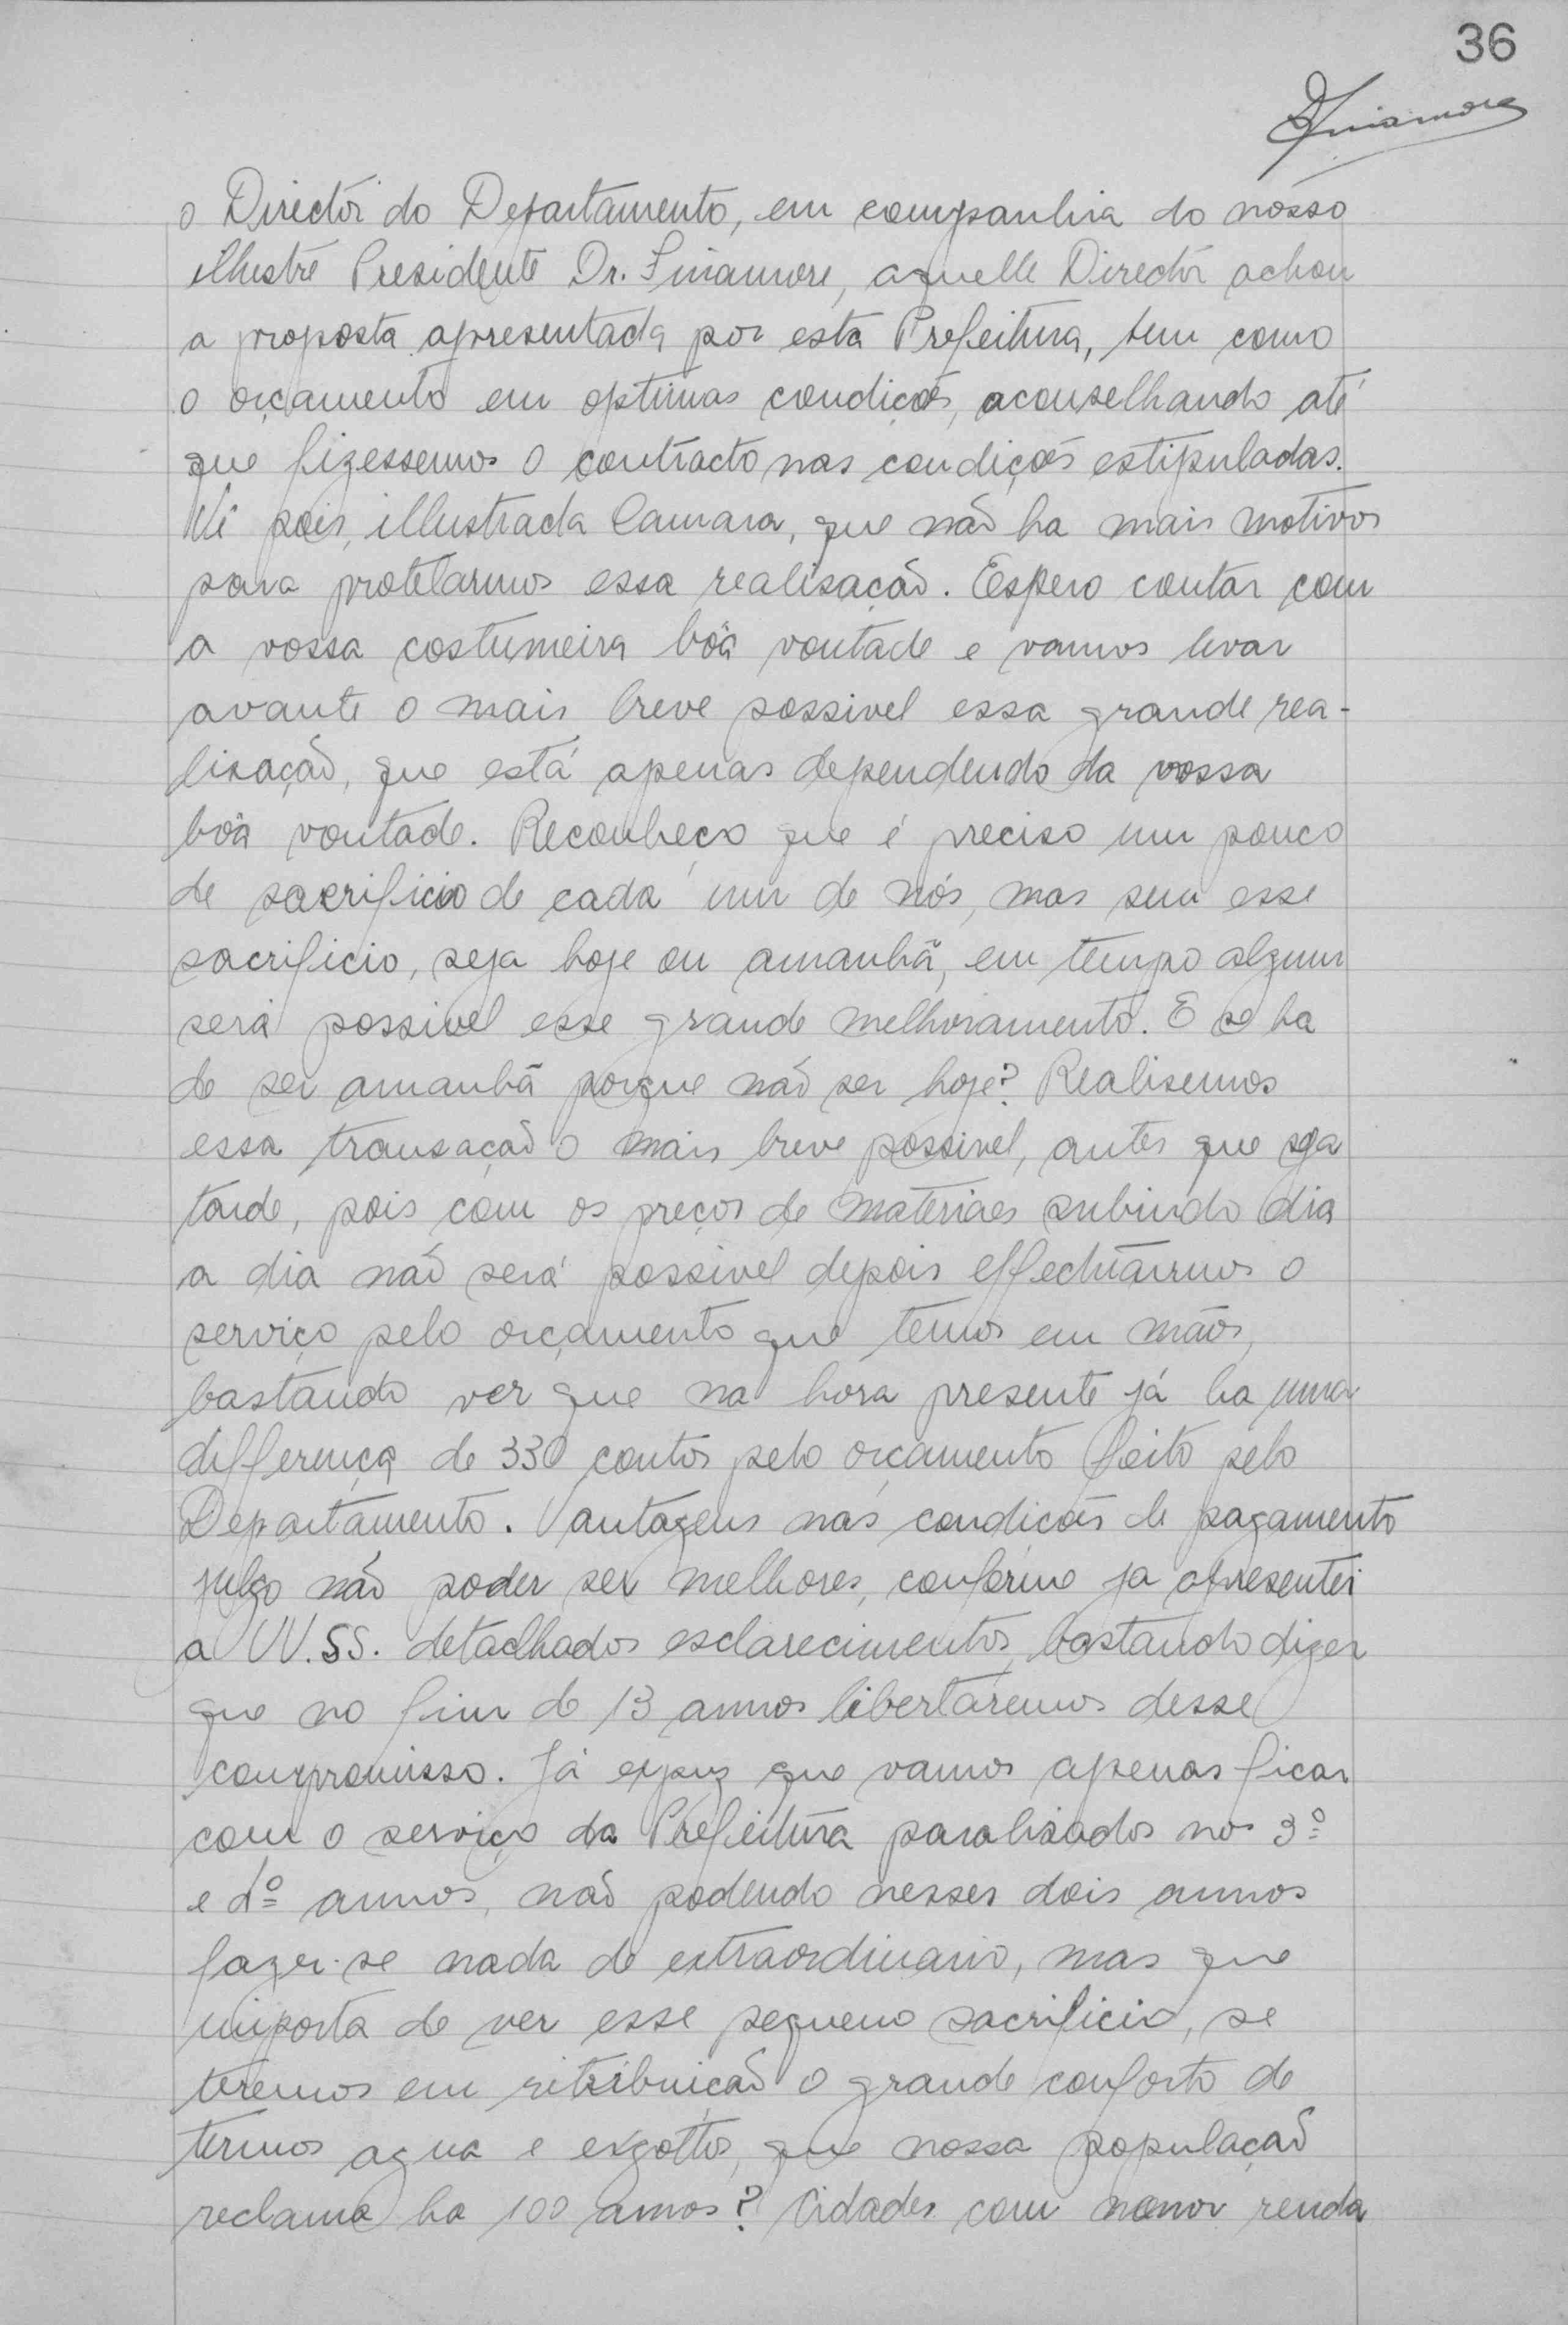 36
Finamore
o Directór do Departamento, em companhia do nósso
illustre Presidente Dr. Finamore, aquelle Directór achou
a proposta apresentada por esta Prefeitura, bem como
o orçamento em optimas condições, aconselhando até
que fizessemos o contracto nas condições estipuladas.
Vê pois, illustrada Camara, que não ha mais motivos
para protelarmos essa realisação. Espero contar com
a vossa costumeira bôa vontade e vamos levar
avante o mais breve possivel essa grande rea-
lisação, que está apenas dependendo da vossa
bôa vontade. Reconheço que é preciso um pouco
de sacrificio de cada um de nós, mas sem esse
sacrificio, seja hoje ou amanhã, em tempo algum
será possivel esse grande melhoramento. E se ha
de ser amanhã porque não ser hoje? Realisemos
essa transação o mais breve possivel, antes que seja
tarde, pois com os preços de materiaes subindo dia
a dia não será possivel depois effectuármos o
serviço pelo orçamento que temos em mãos,
bastando ver que na hora presente já ha uma
differença de 330 contos pelo orçamento feito pelo
Departamento. Vantagens nas condições de pagamento
julgo não poder ser melhores, conforme ja apresentei
a VV.SS. detalhados esclarecimentos, bastando dizer
que no fim de 13 annos libertaremos desse
compromisso. Já expuz que vamos apenas ficar
com o serviço da Prefeitura paralisados nos 3º
e 4º annos, não podendo nesses dois annos
fazer-se nada de extraordinario, mas que
importa de ver esse pequeno sacrificio, se
teremos em ritribuição o grande conforto de
termos agua e exgottos, que nossa população
reclama ha 100 annos? Cidades com menor renda